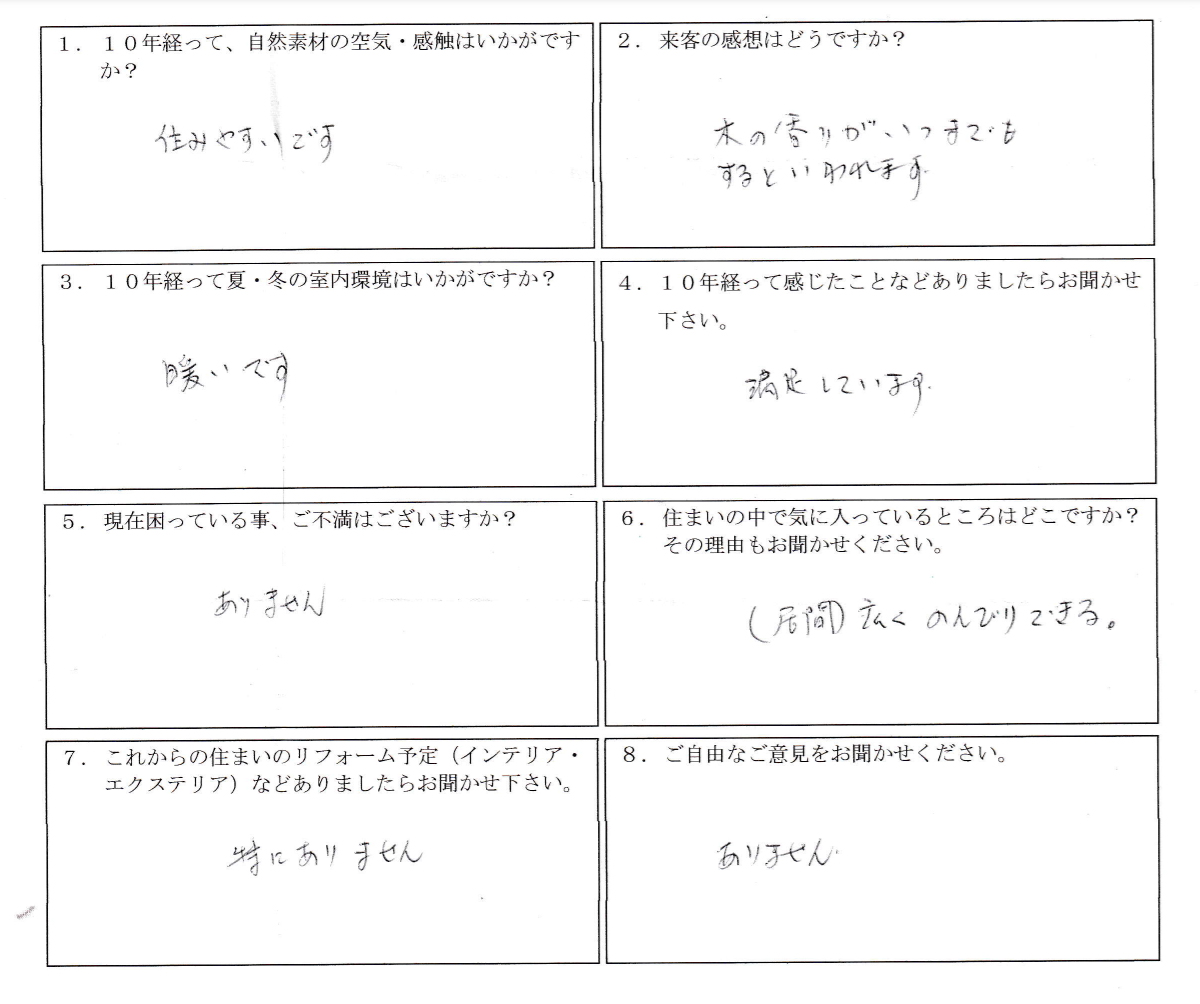 １．１０年経って、自然素材の空気・感触はいかがです
か？
住みやすいです
２．来客の感想はどうですか？
木の香りがいつまでも
するといわれます。
３．１０年経って夏・冬の室内環境はいかがですか？
暖いです
４．１０年経って感じたことなどありましたらお聞かせ
下さい。
満足しています。
５．現在困っている事、ご不満はございますか？
ありません
６．住まいの中で気に入っているところはどこですか？
その理由もお聞かせください。
(居間)広くのんびりできる。
７．これからの住まいのリフォーム予定（インテリア・
エクステリア）などありましたらお聞かせ下さい。
特にありません
８．ご自由なご意見をお聞かせください。
ありません